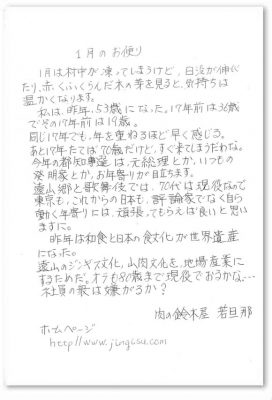 1月のお便り
1月は村中が凍ってしまうけど、日没が伸び
たり、赤くふくらんだ木の芽を見ると、気持ちは
温かくなります。
私は、昨年、53歳になった。17年前は36歳
でその17年前は19歳。
同じ17年でも、年を重ねるほど早く感じる。
あと17年たてば70歳だけど、すぐ来てしまうだわな。
今年の都知事選は、元総理とか、いつもの
発明家とか、お年寄りが目立ちます。
遠山郷と歌舞伎では、70代は現役なので
東京も、これからの日本も、評論家でなく自ら
動く年寄りには、頑張ってもらえば良いと思い
ますに。
昨年は和食と日本の食文化が世界遺産
になった。
遠山のジンギス文化、山肉文化を、地場産業に
するためだ。オラも80歳まで現役でおるかな、…
社員の衆は嫌がるか?
肉の鈴木屋 若旦那
ホームページ
http://www.jingisu.com